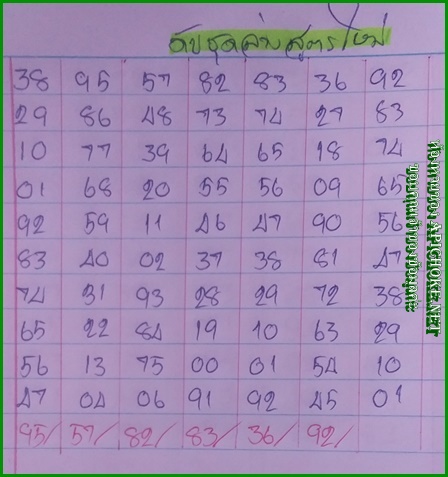 ดับชุดล่างสูตรใหม่
38 95 57 82 83 36 92
29 86 48 73 74 27 83
10 77 39 64 65 18 74
01 68 20 55 56 09 65
92 59 11 46 47 90 56
83 40 02 37 38 81 47
74 31 93 28 29 72 38
65 22 84 19 10 63 29
56 13 75 00 01 54 10
47 04 06 91 92 45 01
95/ 57/ 82/ 83/ 36/ 92/